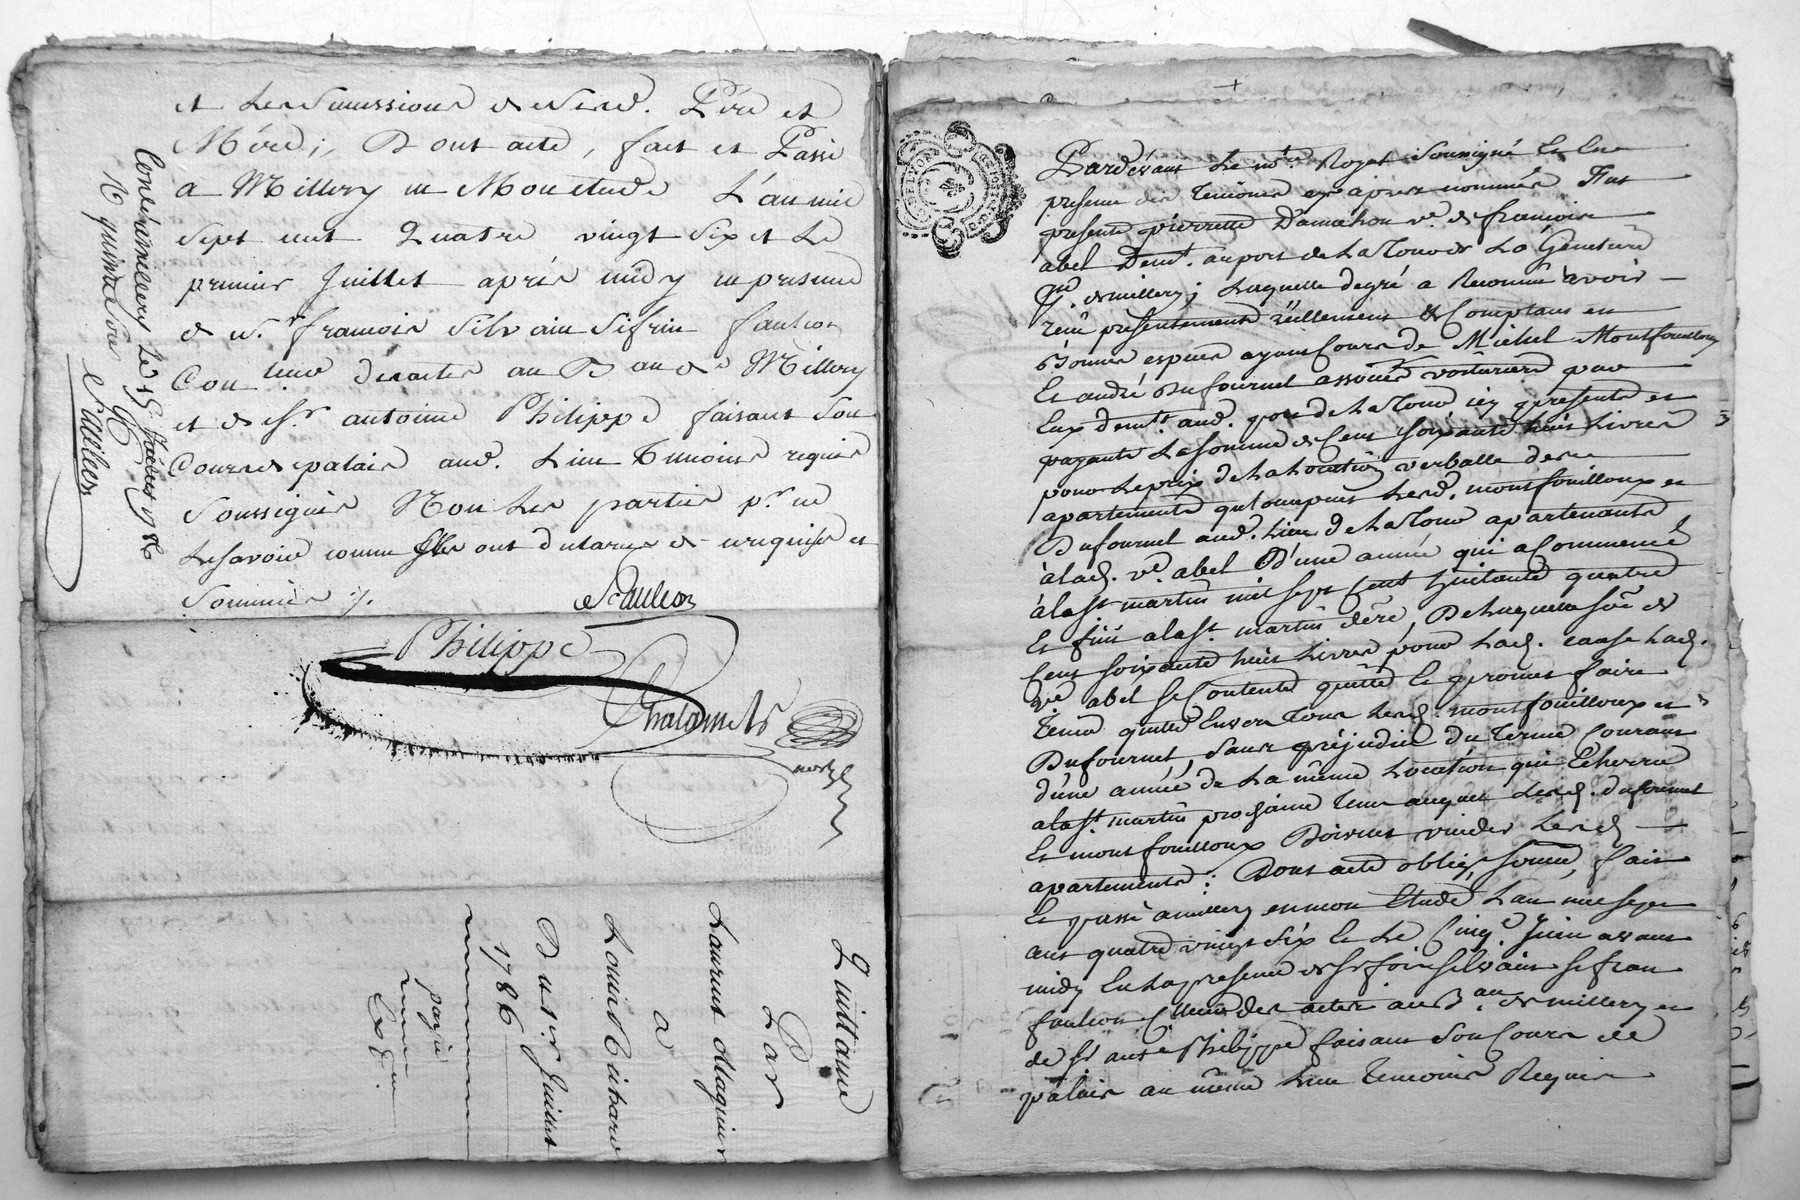 et
Mére ; Dont acte, fait et Passé
a Millery en Mon etude L'an mil
Sept cent Quatre vingt Six et Le
premier Juillet aprés midy en presence
de françois Silvain faulcon
des actes au de Millery
et de Sr. antoine Philippe faisant Son
Cours de palais aud. Lieu Temoins requis
Soussignés Non Les parties pr. ne
Le savoir comme elles ont declaré de ce requises et
Sommées ./.
Faulcon
Philippe
Chalamels
Controllé a millery Le 15 Juillet 1786
R quinze Sols
Faulcon
Quittance
Par
Laurent Maquin
a
Louis
Du 1er Juillet
1786
payé
Exp.
Pardevant Le no.re Royal Soussigné Et En
presence des Temoins cy apres nommés Fut
presente pierrette Damahon ve. de françois
abel Demt. au port de La Tour
de millery ; Laquelle degré a Reconnu avoir
recu presentement réellement & Comptant en
bonnes especes ayant Cours de Michel Montfouilloux
Et andré Dufournel associés voituriers par
Eux demts. aud. port de La Tour icy presents et
payants La somme de Cent soixante huit Livres
pour Le prix de La Location verballe des
apartements qu'occupent Lesd. montfouilloux et
Dufournel aud. Lieu de La Tour apartenants
à lad. ve. abel D'une année qui a Commencé
à la St. martin mil sept Cent huitante quatre
Et fini a la St. martin dére, De Laquelle sõe de
Cent soixante huit Livres pour Lad. cause Lad.
ve. abel se Contente quitte et promet faire
Tenir quitte Envers Tous Lesd. montfouilloux et
Dufournel, sans préjudice du Terme Courant
d'une année de La même Location qui Echerra
a la St. martin prochaine Tems auquel Lesd. dufournel
Et montfouilloux Doivent vuider Lesd.
apartements : Dont acte oblig., soumis, fait
Et passé a millery en mon Etude L'an mil sept
cent quatre vingt Six Et Le Cinq Juin avant
midy En La presence de Sr. fois. Silvain
faulcon des actes au Bau. de millery et
de Sr. ante. Philippe faisant Son Cours de
palais au même Lieu Temoins Requis